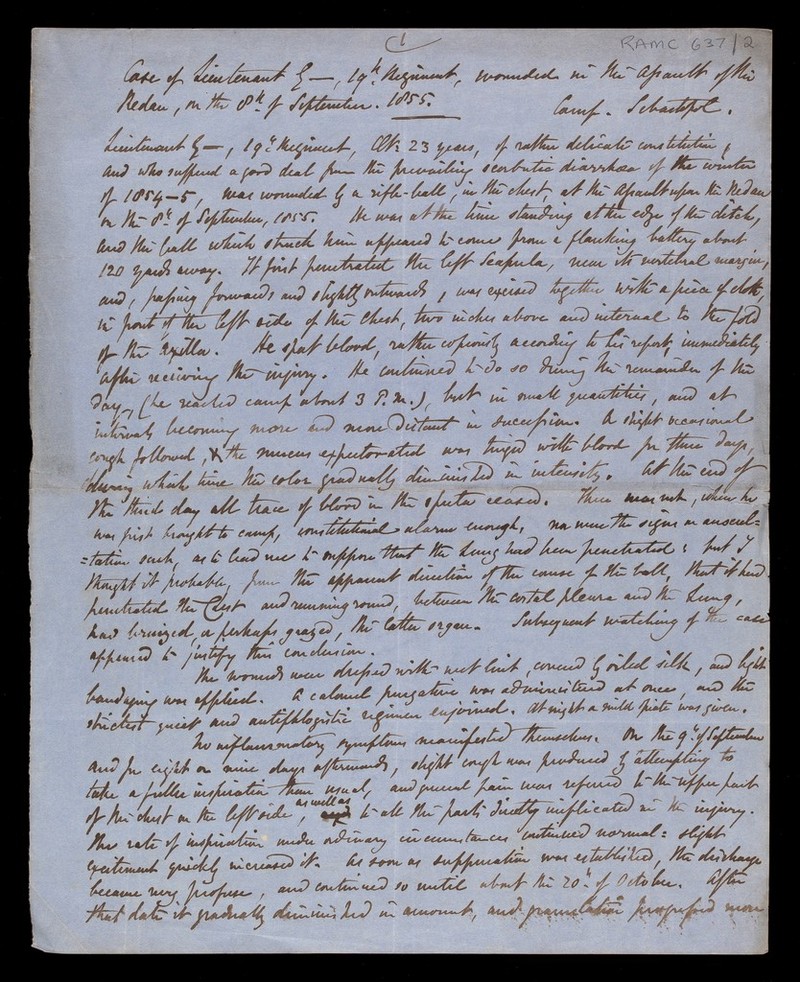 RAMC 637/2
Case of Lieutenant G—, 19th Regiment, wounded in the assault of the
Redan, on the 8th of September. 1855.
Camp. Sebastopol.
Lieutenant G—, 19th Regiment, Æt: 23 years, of rather delicate constitution,
and who suffered a good deal from the prevailing scorbutic diarrhœa of the winter
of 1854–5, was wounded by a rifle-ball, in the chest, at the assault upon the Redan
on the 8th of September, 1855. He was at the time standing at the edge of the ditch,
and the ball which struck him appeared to come from a flanking battery about
120 yards away. It first penetrated the left scapula, near its vertebral margin,
and, passing forwards and slightly outwards, was excised together with a piece of cloth,
in front of the left side of the chest, two inches above and internal to the fold
of the axilla. He spat blood, rather copiously according to his report, immediately
after receiving the injury. He continued to do so during the remainder of the
day, (he reached camp about 3 P.M.), but in small quantities, and at
intervals becoming more and more distant in succession. A slight occasional
cough followed, & the mucus expectorated was tinged with blood for three days,
during which time the color gradually diminished in intensity. At the end of
the third day all trace of blood in the sputa ceased. There was not, when he
was first brought to camp, constitutional alarm enough, nor were the signs on auscul=
=tation such, as to lead me to suppose that the lung had been penetrated: but I
thought it probable, from the apparent direction of the course of the ball, that it had
penetrated the Chest and running round, between the costal pleura and the lung,
had bruised, or perhaps grazed, the latter organ. Subsequent watching of the case
appeared to justify this conclusion.
The wounds were dressed with wet lint, covered by oiled silk, and light
bandaging was applied. A calomel purgative was administered at once, and the
strictest quiet and antiphlogistic regimen enjoined. At night a mild opiate was given.
No inflammatory symptoms manifested themselves. On the 9th of September
and for eight or nine days afterwards, slight cough was produced by attempting to
take a fuller inspiration than usual, and general pain was referred to the upper part
of the chest on the left side, as well as to all the parts directly implicated in the injury.
The rate of inspiration under ordinary circumstances continued normal: slight
excitement quickly increased it. As soon as suppuration was established, the discharge
became very profuse, and continued so until about the 20th of October. After
that date it gradually diminished in amount, and granulation progressed more